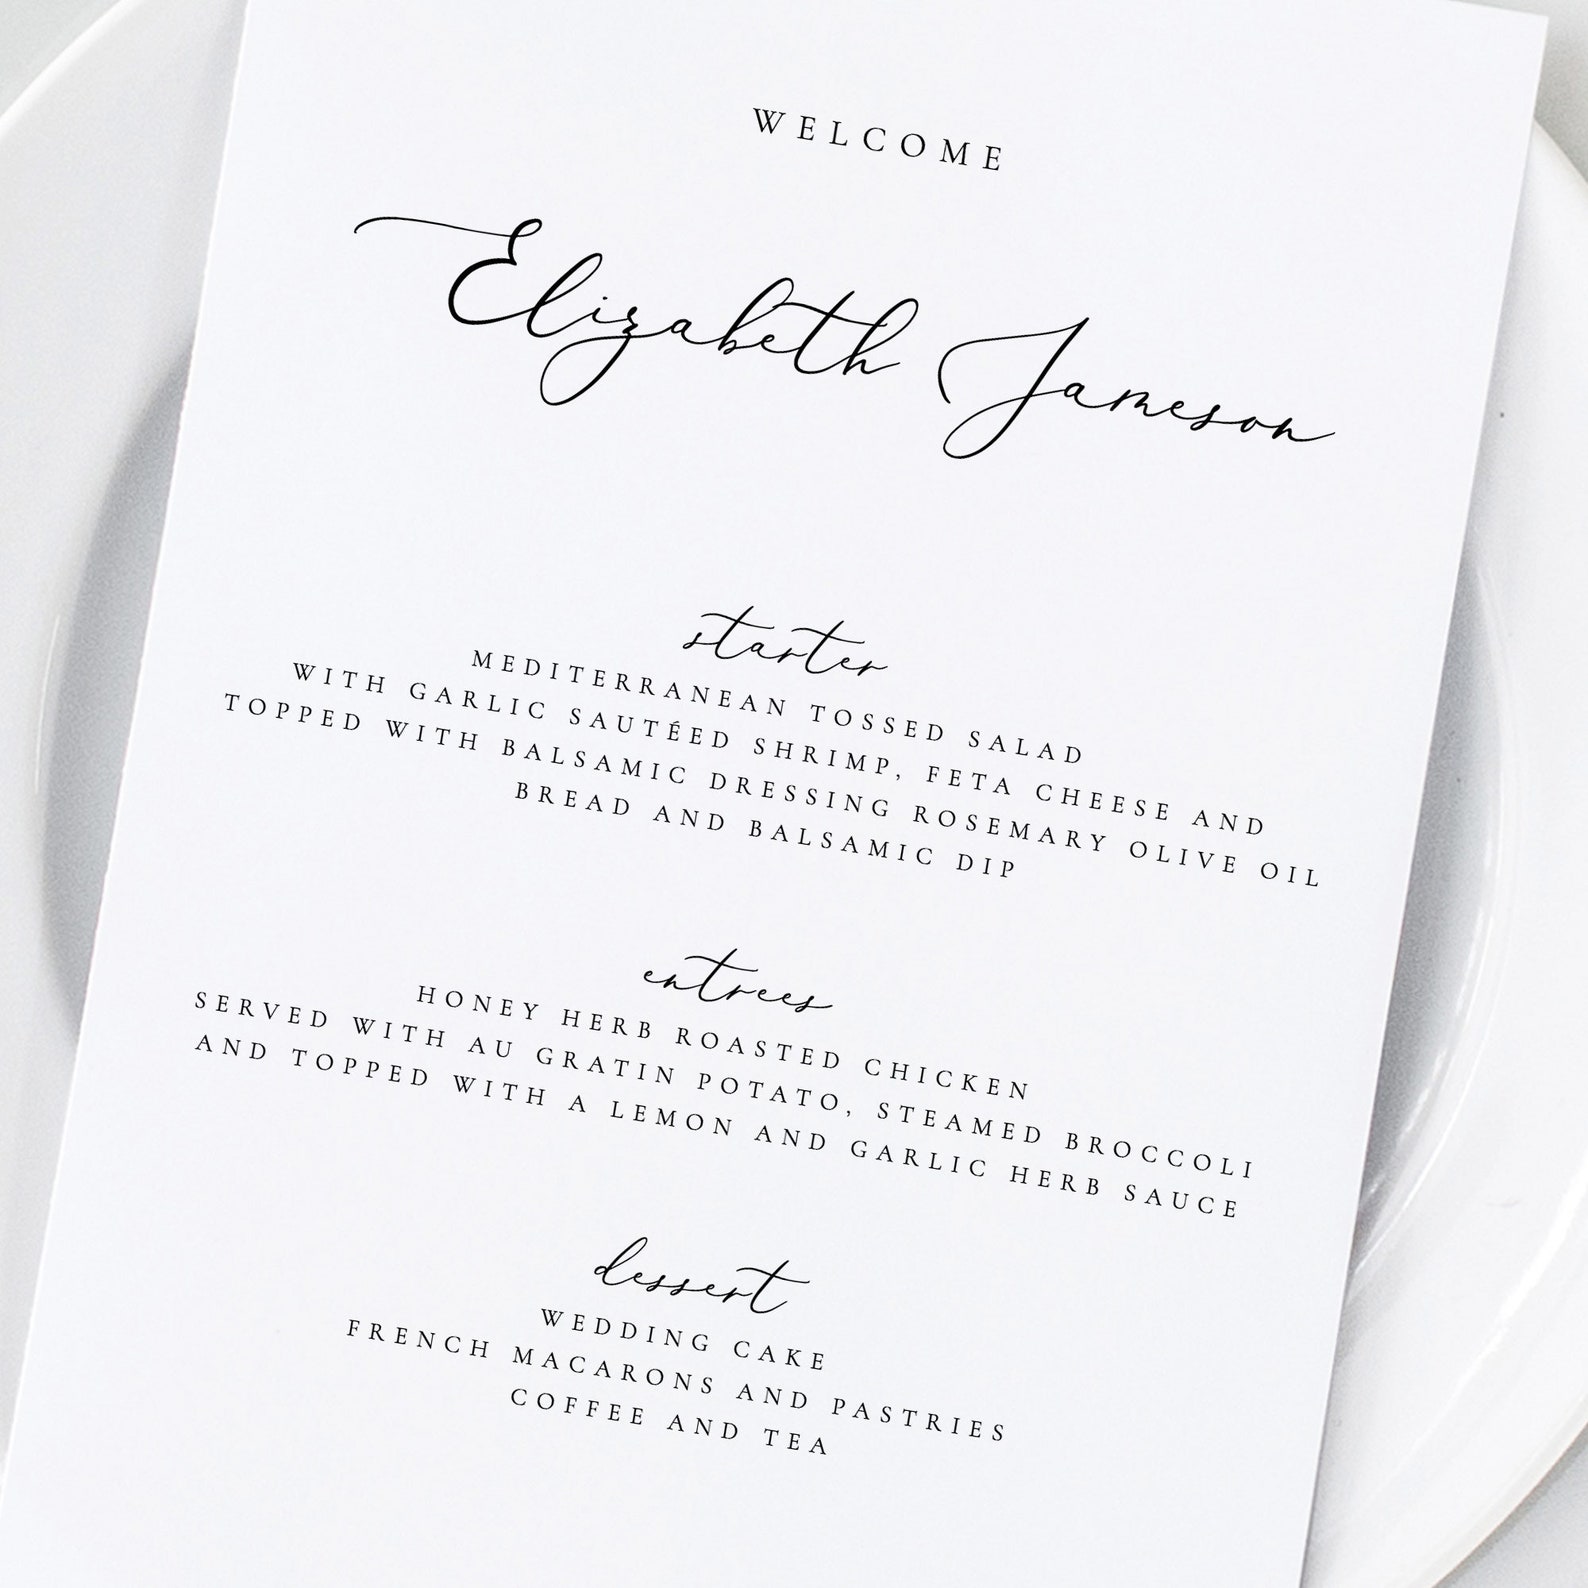 WELCOME
Elizabeth Jameson
starter
MEDITERRANEAN TOSSED SALAD
WITH GARLIC SAUTÉED SHRIMP, FETA CHEESE AND
TOPPED WITH BALSAMIC DRESSING ROSEMARY OLIVE OIL
BREAD AND BALSAMIC DIP
entrees
HONEY HERB ROASTED CHICKEN
SERVED WITH AU GRATIN POTATO, STEAMED BROCCOLI
AND TOPPED WITH A LEMON AND GARLIC HERB SAUCE
dessert
WEDDING CAKE
FRENCH MACARONS AND PASTRIES
COFFEE AND TEA